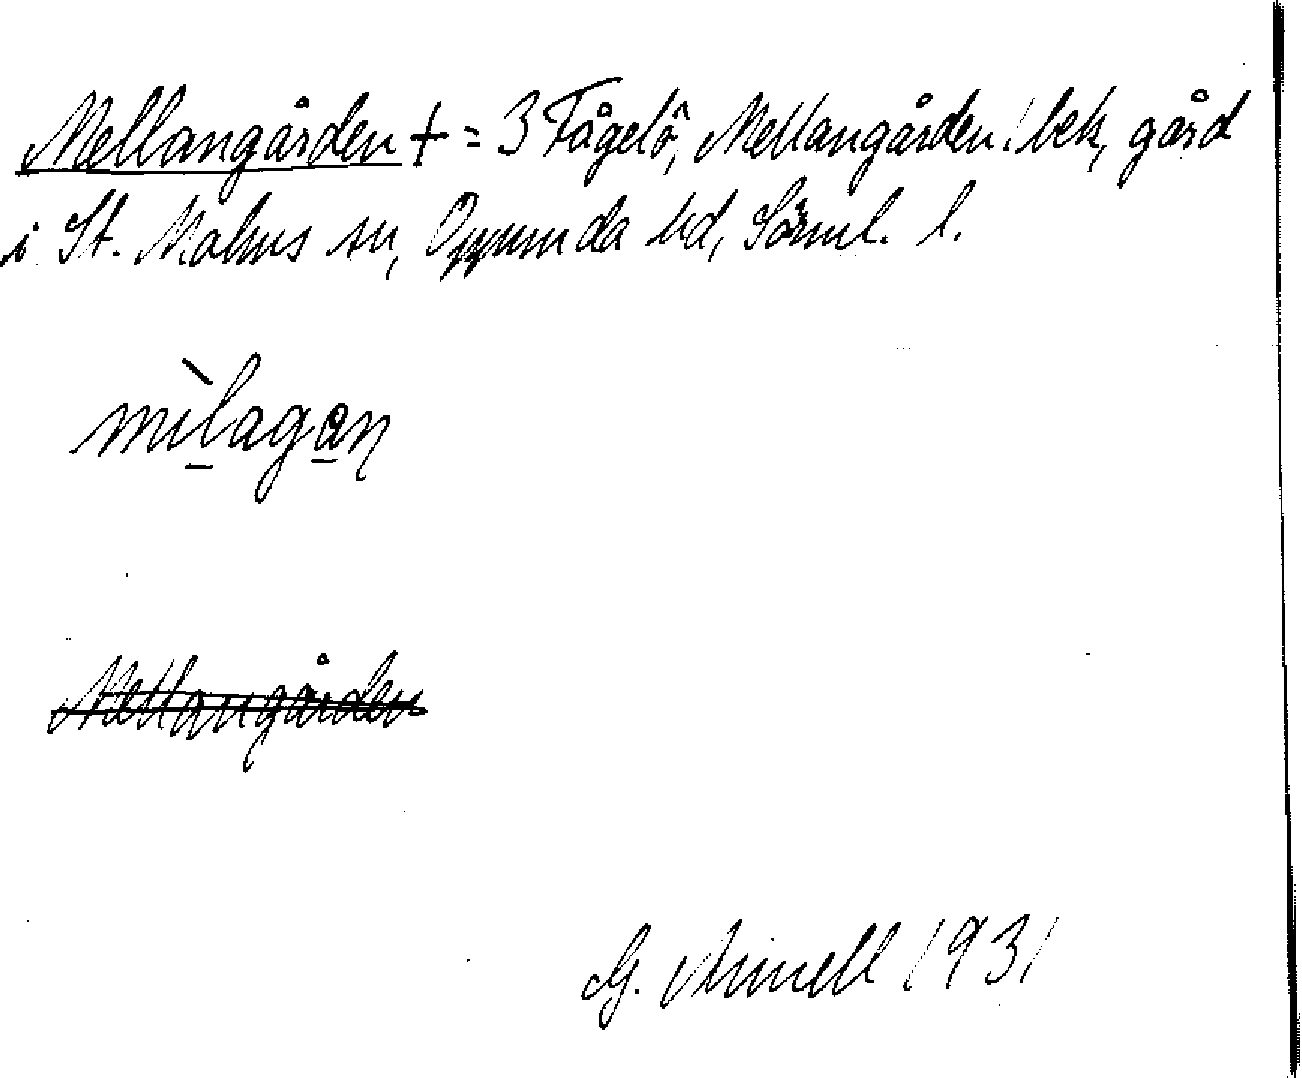 Mellangården + = 3 Fågelö, Mellangården. bek, gård
i St. Malms sn, Oppunda hd, Sörml. l.
mìlagan
Mellangården
G. Arinell 1931